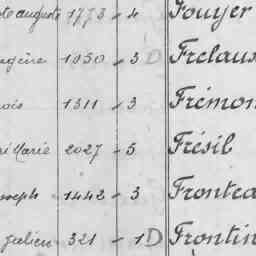 te auguste 1773 - 4 Fouyer
ugène 1050 - 3 D Frelaus
ois 1311 - 3 Frémon
ri Marie 2027 - 5 Frésil
oseph 1442 - 3 Frontea
Julien 321 - 1 D Frontin